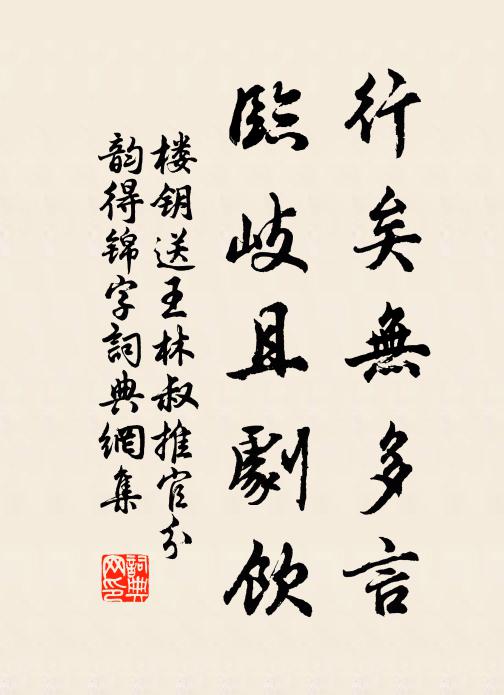 行矣無多言
臨岐且劇飲
楼钥送王林叔推官分
韵得锦字詞典網集
詞典
网印